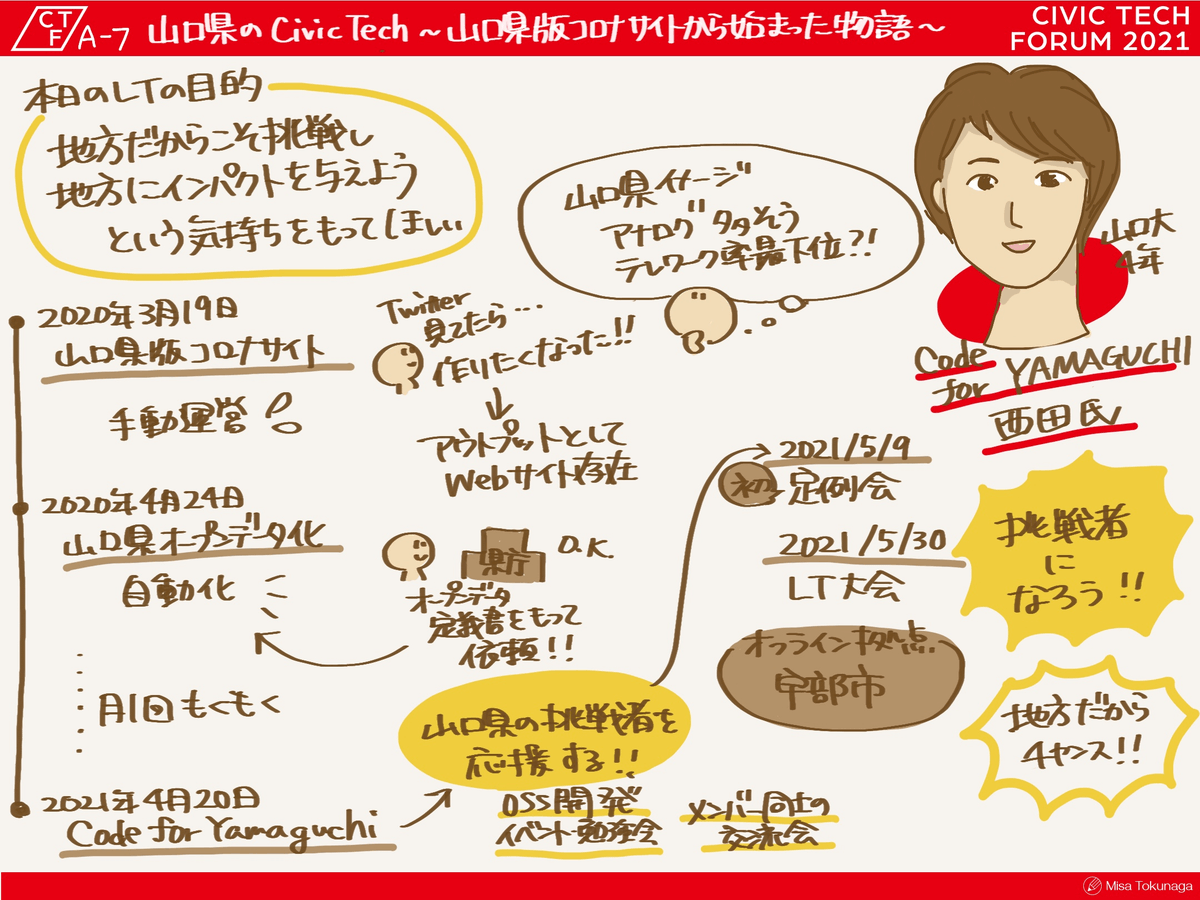 CTF A-7 山口県のCivic Tech ~山口県版コロナサイトから始まった物語~
CIVIC TECH
FORUM 2021
本日のLTの目的
地方だからこそ挑戦し
地方にインパクトを与えよう
という気持ちをもってほしい
山口県イメージ
アナログ タタそう
テレワーク率最下位?!
山口大
4年
Code
for YAMAGUCHI
西田氏
2020年3月19日
山口県版コロナサイト
手動運営
Twitter
見てたら…
作りたくなった!!
アウトプットとして
Webサイト存在
2020年4月24日
山口県オープンデータ化
自動化
県庁
O.K.
オープンデータ
定義書をもって
依頼!!
月1回もくもく
2021年4月20日
Code for Yamaguchi
山口県の挑戦者を
応援する!!
OSS開発
イベント勉強会
メンバー同士の
交流会
2021/5/9
初 定例会
2021/5/30
LT大会
オフライン拠点
宇部市
挑戦者
に
なろう!!
地方だから
チャンス!!
Misa Tokunaga